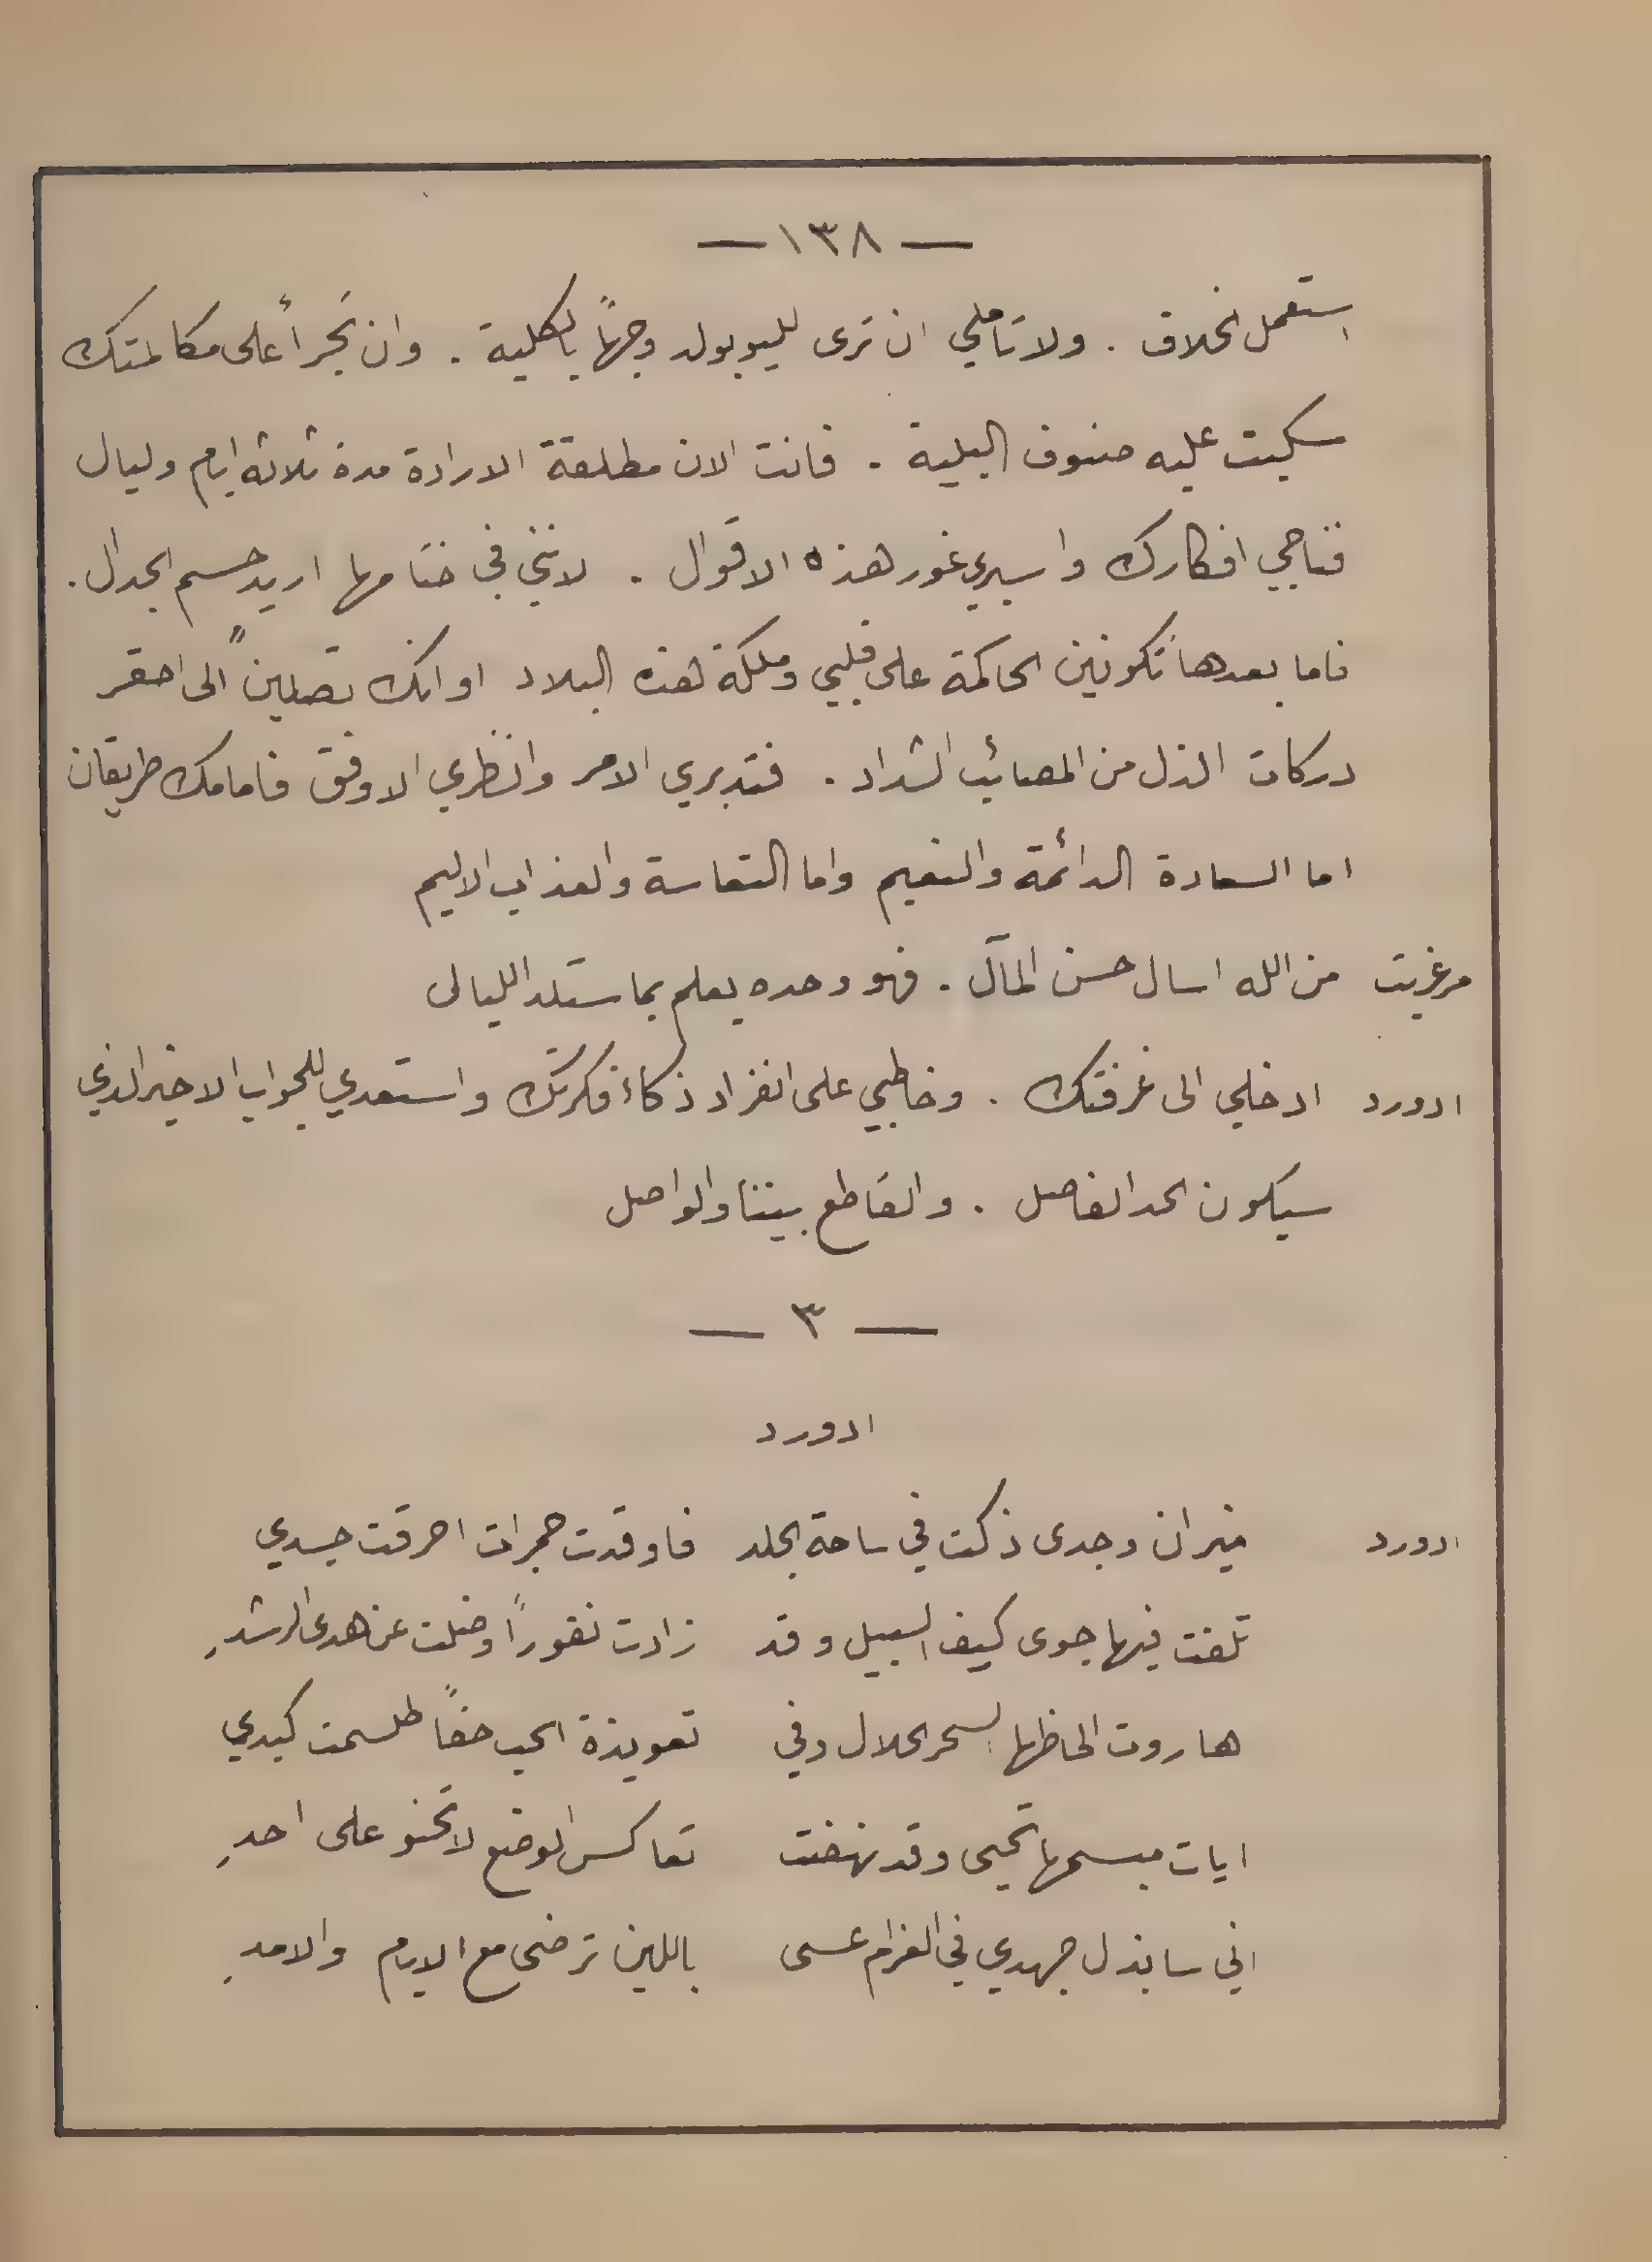 — ١٣٨ —
استعمل بخلاق . ولا تاملي ان ترى لليوبولد وجهاً بالكلية . وان تجرأ على مكالمتك
سكبت عليه صنوف البلية . فانت الان مطلقة الارادة مدة ثلاثة ايام وليال
فناجي افكارك واسبري غور هذه الاقوال . لانني في ختامها اريد حسم الجدال .
فاما بعدها تكونين الحاكمة على قلبي وملكة لهذه البلاد او انك تصلين الى احقر
دركات الذل من المصائب الشداد . فتدبري الامر وانظري الاوفق فامامك طريقان
اما السعادة الدائمة والنعيم واما التعاسة والعذاب الاليم
مرغريت من الله اسال حسن المآل . فهو وحده يعلم بما ستلد الليالى
ادورد ادخلي الى غرفتك . وخاطبي على انفراد ذكاء فكرتك واستعدي للجواب الاخير الذي
سيكون الحد الفاصل . والقاطع بيننا والواصل
— ٣ —
ادورد
ادورد نيران وجدى ذكت في ساحة الجلد فاوقدت جمرات احرقت جسدي
تلفت فيها جوى كيف السبيل وقد زادت نفوراً وضلت عن هدى الرشدِ
هاروت الحاظها السحر الحلال وفي تعويذة الحب حقاً طلسمت كبدي
ايات مبسمها تحيى وقد نهضت تعاكس الوضع لا تحنو على احدِ
اني سابذل جهدي في الغرام عسى باللين ترضى مع الايام والامدِ